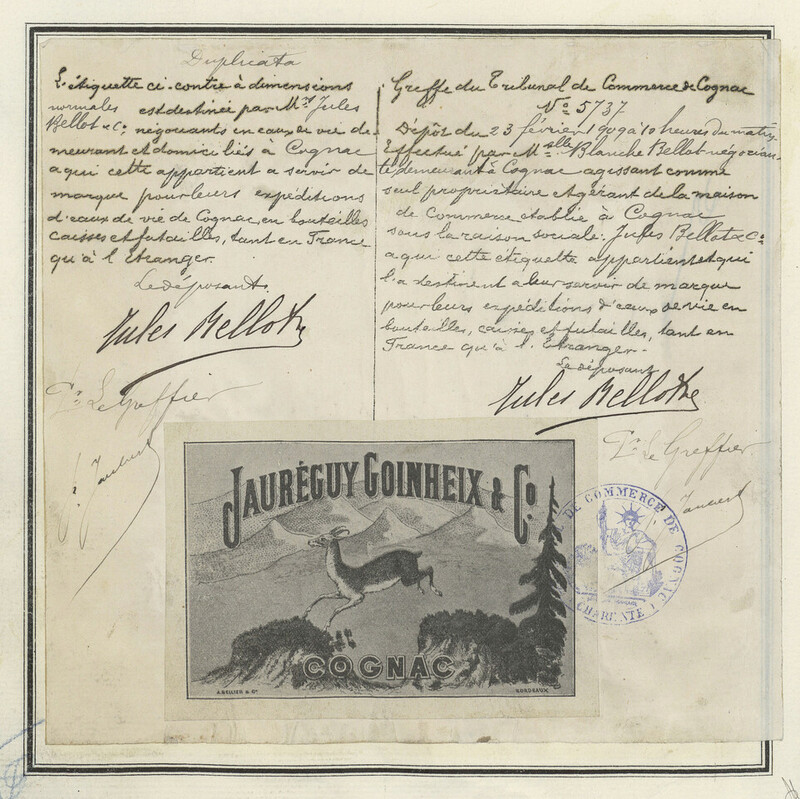 Duplicata
L'étiquette ci-contre à dimensions
normales est destinée par Mrs Jules
Bellot & Co négociants en eaux de vie de-
meurant et domiciliés à Cognac
a qui cette appartient a servir de
marque pour leurs expéditions
d'eaux de vie de Cognac, en bouteilles
caisses et futailles, tant en France
qu'à l'Etranger.
Le déposant.
Jules Bellot & Co
Pr Le Greffier
Greffe du Tribunal de Commerce de Cognac
No 5737
Dépôt du 23 février 1909 à 10 heures du matin
Effectué par Melle Blanche Bellot négocian-
te, demeurant à Cognac agissant comme
seul propriétaire et gérant de la maison
de Commerce établie à Cognac
sous la raison sociale: Jules Bellot & Co
a qui cette étiquette appartient et qui
l'a destinent a leur servir de marque
pour leurs expéditions d'eaux de vie en
bouteilles, caisses et futailles, tant en
France qu'à l'Etranger.-
Le déposant
Jules Bellot & Co
Pr Le Greffier
JAURÉGUY GOINHEIX & Co
COGNAC
A. BELLIER & Co
BORDEAUX
DE COMMERCE DE COGNAC
CHARENTE